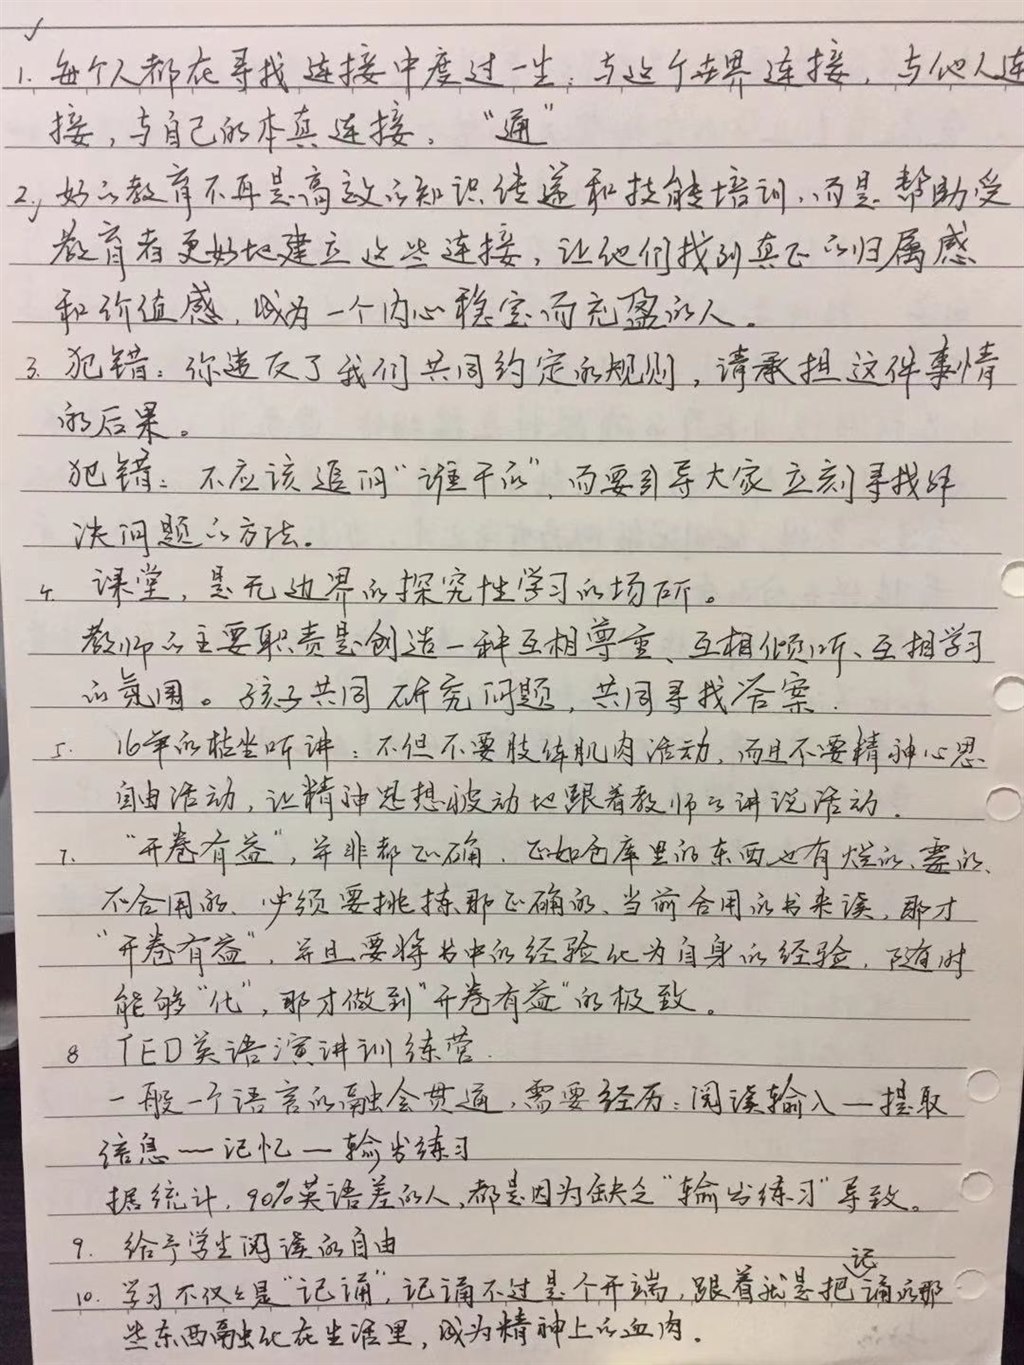 1. 每个人都在寻找连接中度过一生：与这个世界连接，与他人连
接，与自己的本真连接。 “通”
2. 好的教育不再是高效的知识传递和技能培训，而是帮助受
教育者更好地建立这些连接，让他们找到真正的归属感
和价值感，成为一个内心稳定而充盈的人。
3. 犯错：你违反了我们共同约定的规则，请承担这件事情
的后果。
犯错：不应该追问“谁干的”，而要引导大家立刻寻找解
决问题的方法。
4. 课堂，是无边界的探究性学习的场所。
教师的主要职责是创造一种互相尊重、互相倾听、互相学习
的氛围。孩子共同研究问题，共同寻找答案.
5. 16年的枯坐听讲：不但不要肢体肌肉活动，而且不要精神心思
自由活动，让精神思想被动地跟着教师的讲说活动.
7. “开卷有益”，并非都正确，正如仓库里的东西也有烂的、霉的、
不合用的、必须要挑拣那正确的、当前合用的书来读，那才
“开卷有益”，并且要将书中的经验化为自身的经验，随时
能够“化”，那才做到“开卷有益”的极致。
8 TED英语演讲训练营.
一般一个语言的融会贯通，需要经历：阅读输入—提取
信息—记忆—输出练习
据统计，90%英语差的人，都是因为缺乏“输出练习”导致。
9. 给予学生阅读的自由
10. 学习不仅仅是“记诵”，记诵不过是个开端，跟着就是把记诵的那
些东西融化在生活里，成为精神上的血肉.